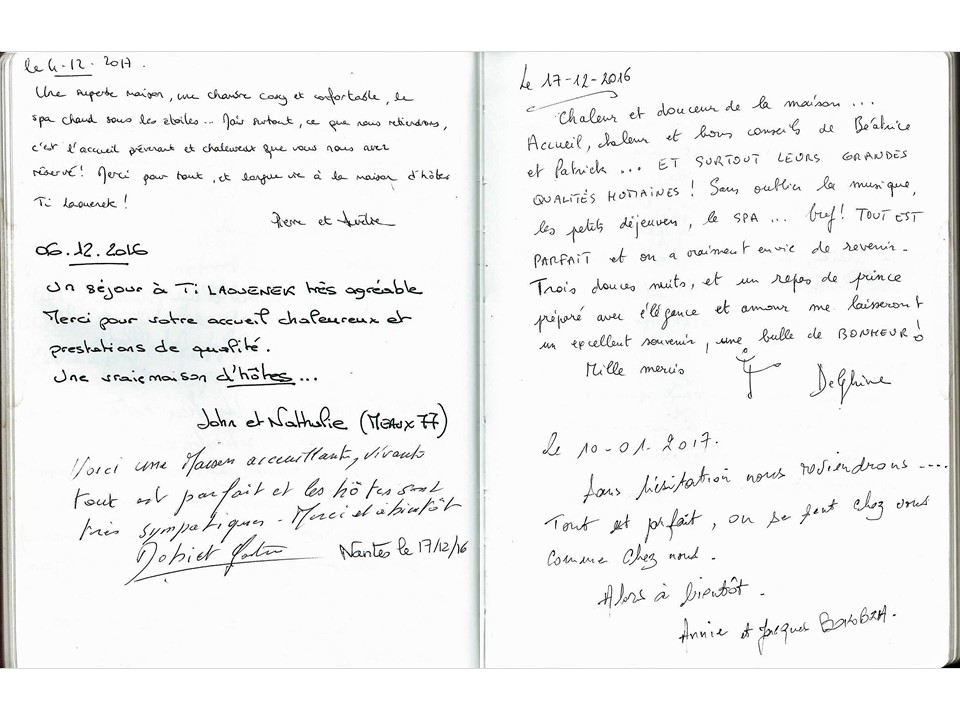 le 4-12-2017.
Une superbe maison, une chambre cosy et confortable, le
spa chaud sous les étoiles... Mais surtout, ce que nous retiendrons,
c'est l'accueil prévenant et chaleureux que vous nous avez
réservé! Merci pour tout, et longue vie à la maison d'hôtes
Ti Laouenek!
Pierre et
06.12.2016
Un séjour à Ti LAOUENEK très agréable
Merci pour votre accueil chaleureux et
prestations de qualité.
Une vraie maison d'hôtes...
John et Nathalie (MEAUX 77)
Voici une Maison accueillante, vivante
tout est parfait et les hôtes sont
très sympatiques - Merci et à bientôt
Nantes le 17/12/16
Le 17-12-2016
Chaleur et douceur de la maison...
Accueil, chaleur et bons conseils de Béatrice
et Patrick... ET SURTOUT LEURS GRANDES
QUALITÉS HUMAINES! Sans oublier la musique,
les petits déjeuners, le SPA... bref! TOUT EST
PARFAIT et on a vraiment envie de revenir.
Trois douces nuits, et un repas de prince
préparé avec élégance et amour me laisseront
un excellent souvenir, une bulle de BONHEUR!
Mille mercis
Delphine
le 10-01-2017.
Sans hésitation nous reviendrons....
Tout est parfait, on se sent chez vous
comme chez nous.
Alors à bientôt.
Annie et Jacques